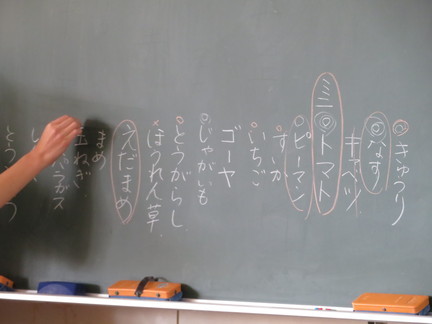 きゅうり
なす
キャベツ
ミニトマト
ピーマン
すいか
いちご
ゴーヤ
じゃがいも
とうがらし
ほうれん草
えだまめ
まめ
玉ねぎ